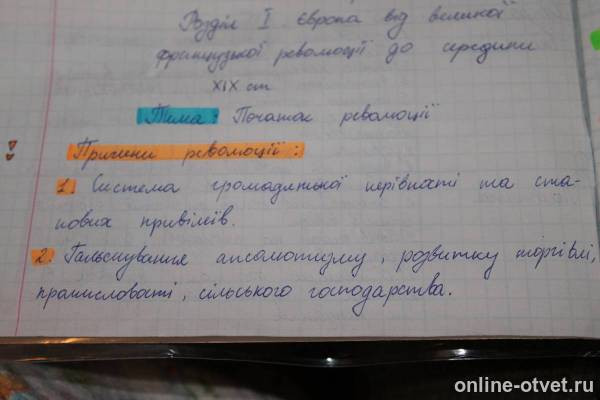 Розділ І Європа від великої
французської революції до середини
ХІХ ст
Тема: Початок революції
Причини революції:
1. Система громадянської нерівності та ста-
нових привілеїв.
2. Гальмування апсолютизму, розвитку торгівлі,
промисловості, сільського господарства.
online-otvet.ru